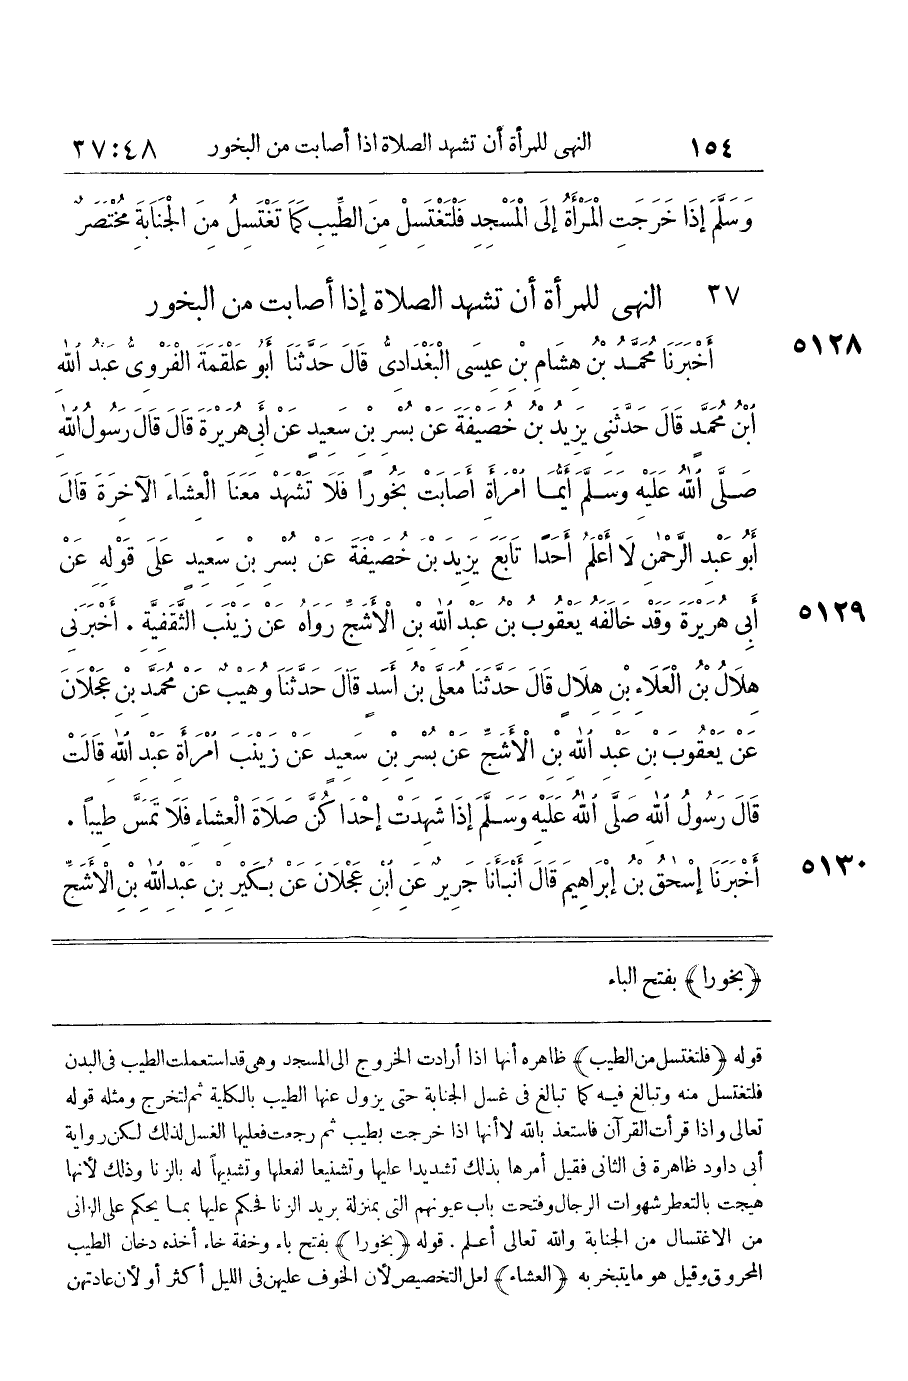 ١٥٤ النهى للمرأة أن تشهد الصلاة اذا أصابت من البخور ٣٧:٤٨
وَسَلَّمَ إِذَا خَرَجَتِ الْمَرْأَةُ إِلَى الْمَسْجِدِ فَلْتَغْتَسِلْ مِنَ الطِّيبِ كَمَا تَغْتَسِلُ مِنَ الْجَنَابَةِ مُخْتَصَرٌ
٣٧ النهى للمرأة أن تشهد الصلاة إذا أصابت من البخور
٥١٢٨ أَخْبَرَنَا مُحَمَّدُ بْنُ هِشَامِ بْنِ عِيسَى الْبَغْدَادِىُّ قَالَ حَدَّثَنَا أَبُو عَلْقَمَةَ الْفَرْوِىُّ عَبْدُ اللهِ
ابْنُ مُحَمَّدٍ قَالَ حَدَّثَنِى يَزِيدُ بْنُ خُصَيْفَةَ عَنْ بُسْرِ بْنِ سَعِيدٍ عَنْ أَبِى هُرَيْرَةَ قَالَ قَالَ رَسُولُ اللهِ
صَلَّى اللهُ عَلَيْهِ وَسَلَّمَ أَيُّمَا امْرَأَةٍ أَصَابَتْ بَخُورًا فَلَا تَشْهَدْ مَعَنَا الْعِشَاءَ الْآخِرَةَ قَالَ
أَبُو عَبْدِ الرَّحْمٰنِ لَا أَعْلَمُ أَحَدًا تَابَعَ يَزِيدَ بْنَ خُصَيْفَةَ عَنْ بُسْرِ بْنِ سَعِيدٍ عَلَى قَوْلِهِ عَنْ
٥١٢٩ أَبِى هُرَيْرَةَ وَقَدْ خَالَفَهُ يَعْقُوبُ بْنُ عَبْدِ اللهِ بْنِ الْأَشَجِّ رَوَاهُ عَنْ زَيْنَبَ الثَّقَفِيَّةِ . أَخْبَرَنِى
هِلَالُ بْنُ الْعَلَاءِ بْنِ هِلَالٍ قَالَ حَدَّثَنَا مُعَلَّى بْنُ أَسَدٍ قَالَ حَدَّثَنَا وُهَيْبٌ عَنْ مُحَمَّدِ بْنِ عَجْلَانَ
عَنْ يَعْقُوبَ بْنِ عَبْدِ اللهِ بْنِ الْأَشَجِّ عَنْ بُسْرِ بْنِ سَعِيدٍ عَنْ زَيْنَبَ امْرَأَةِ عَبْدِ اللهِ قَالَتْ
قَالَ رَسُولُ اللهِ صَلَّى اللهُ عَلَيْهِ وَسَلَّمَ إِذَا شَهِدَتْ إِحْدَاكُنَّ صَلَاةَ الْعِشَاءِ فَلَا تَمَسَّ طِيبًا .
٥١٣٠ أَخْبَرَنَا إِسْحٰقُ بْنُ إِبْرَاهِيمَ قَالَ أَنْبَأَنَا جَرِيرٌ عَنِ ابْنِ عَجْلَانَ عَنْ بُكَيْرِ بْنِ عَبْدِ اللهِ بْنِ الْأَشَجِّ
﴿بخورا﴾ بفتح الباء
قوله ﴿فلتغتسل من الطيب﴾ ظاهره أنها اذا أرادت الخروج الى المسجد وهى قد استعملت الطيب فى البدن
فلتغتسل منه وتبالغ فيه كما تبالغ فى غسل الجنابة حتى يزول عنها الطيب بالكلية ثم لتخرج ومثله قوله
تعالى واذا قرأت القرآن فاستعذ بالله لا أنها اذا خرجت بطيب ثم رجعت فعليها الغسل لذلك لكن رواية
أبى داود ظاهرة فى الثانى فقيل أمرها بذلك تشديدا عليها وتشنيعا لفعلها وتشبيهاً له بالزنا وذلك لأنها
هيجت بالتعطر شهوات الرجال وفتحت باب عيونهم التى بمنزلة بريد الزنا فحكم عليها بما يحكم على الزانى
من الاغتسال من الجنابة والله تعالى أعلم . قوله ﴿بخورا﴾ بفتح باء وخفة خاء أخذه دخان الطيب
المحروق وقيل هو ما يتبخر به ﴿العشاء﴾ لعل التخصيص لأن الخوف عليهن فى الليل أكثر أو لأن عادتهن